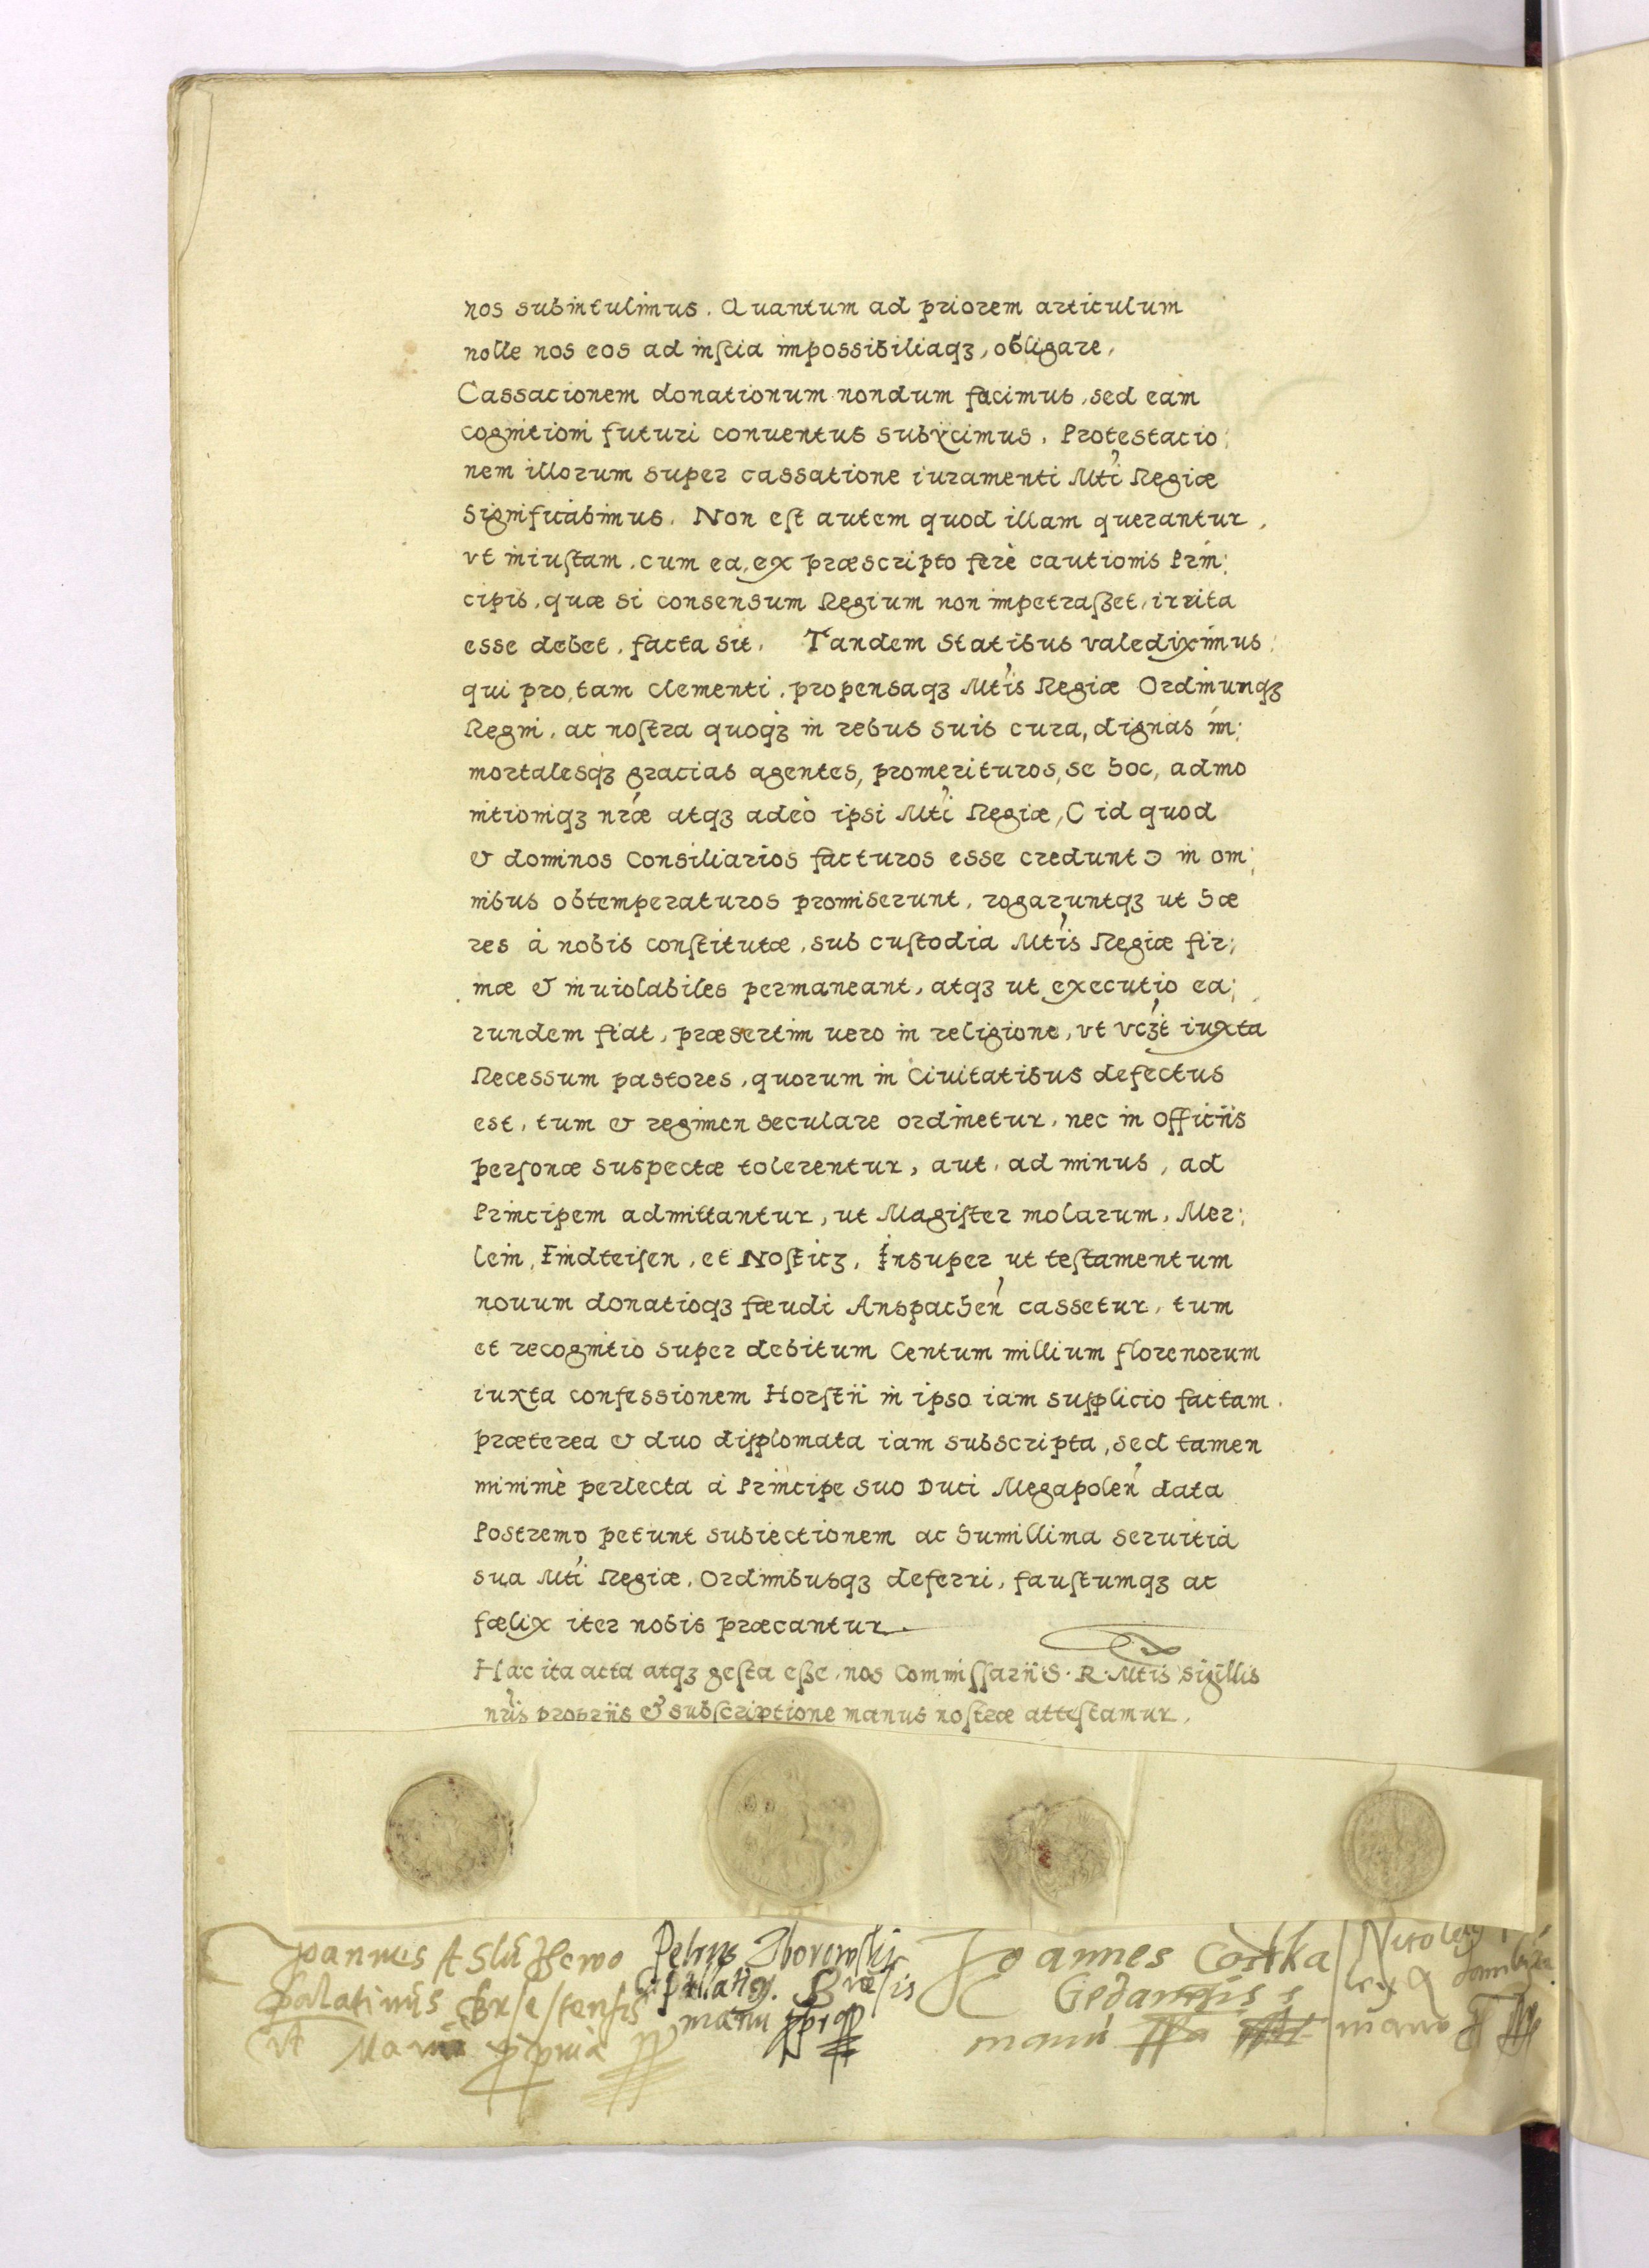 nos subintulimus. Quantum ad priorem articulum
nolle nos eos ad inscia impossibiliaqꝫ, obligare,
Cassacionem donationum nondum facimus, sed eam
cognitioni futuri conuentus subÿcimus. Protestacio:
nem illorum super cassatione iuramenti Mti Regiæ
significabimus. Non est autem quod illam querantur,
vt iniustam, cum ea, ex præscripto ferè cautionis Prin:
cipis, quæ si consensum Regium non impetraßet, irrita
esse debet, facta sit. Tandem Statibus valediximus:
qui pro, tam clementi, propensaqꝫ Mtis Regiæ Ordinumqꝫ
Regni, ac nostra quoqꝫ in rebus suis cura, dignas im:
mortalesqꝫ gracias agentes, promerituros, se hoc, admo
nitioniqꝫ nræ atqꝫ adeò ipsi Mti Regiæ, ( id quod
& dominos Consiliarios facturos esse credunt ) in om:
nibus obtemperaturos promiserunt, rogaruntqꝫ ut hæ
res à nobis constitutæ, sub custodia Mtis Regiæ fir:
mæ & inuiolabiles permaneant, atqꝫ ut executio ea:
rundem fiat, præsertim uero in religione, vt vcꝫt iuxta
Recessum pastores, quorum in Ciuitatibus defectus
est, tum & regimen seculare ordinetur, nec in officiis
personæ suspectæ tolerentur, aut, ad minus, ad
Principem admittantur, ut Magister molarum, Mer:
lein, Findteisen, et Nostitꝫ. Insuper ut testamentum
nouum donatioqꝫ fæudi Anspachen cassetur, tum
et recognitio super debitum Centum millium florenorum
iuxta confessionem Horstii in ipso iam supplicio factam.
præterea & duo diplomata iam subscripta, sed tamen
minimè perlecta à Principe suo Duci Megapolen data
Postremo petunt subiectionem ac humillima seruitia
sua Mti Regiæ, Ordinibusqꝫ deferri, faustumqꝫ ac
fælix iter nobis præcantur.
Hæc ita acta atqꝫ gesta eße, nos Commissarii S. R. Mtis sigillis
nris propriis & subscriptione manus nostræ attestamur.
Joannes A Sluzhewo Petrus Zborowsky Joannes Costka Nicolaus
Palatinus Brzestensis Gedanensis
manu ppria manu manu manu